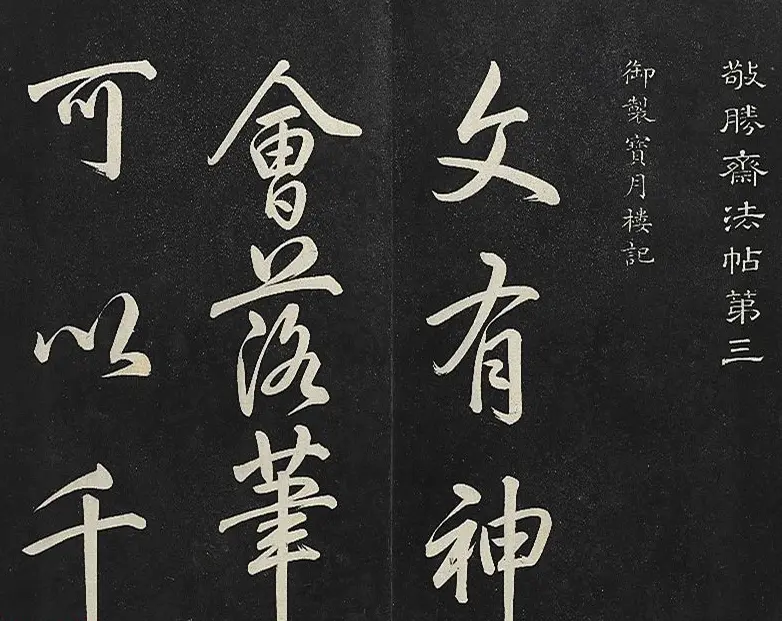 敬勝齋法帖第三
御製寶月樓記
文有神
會落筆
可以千